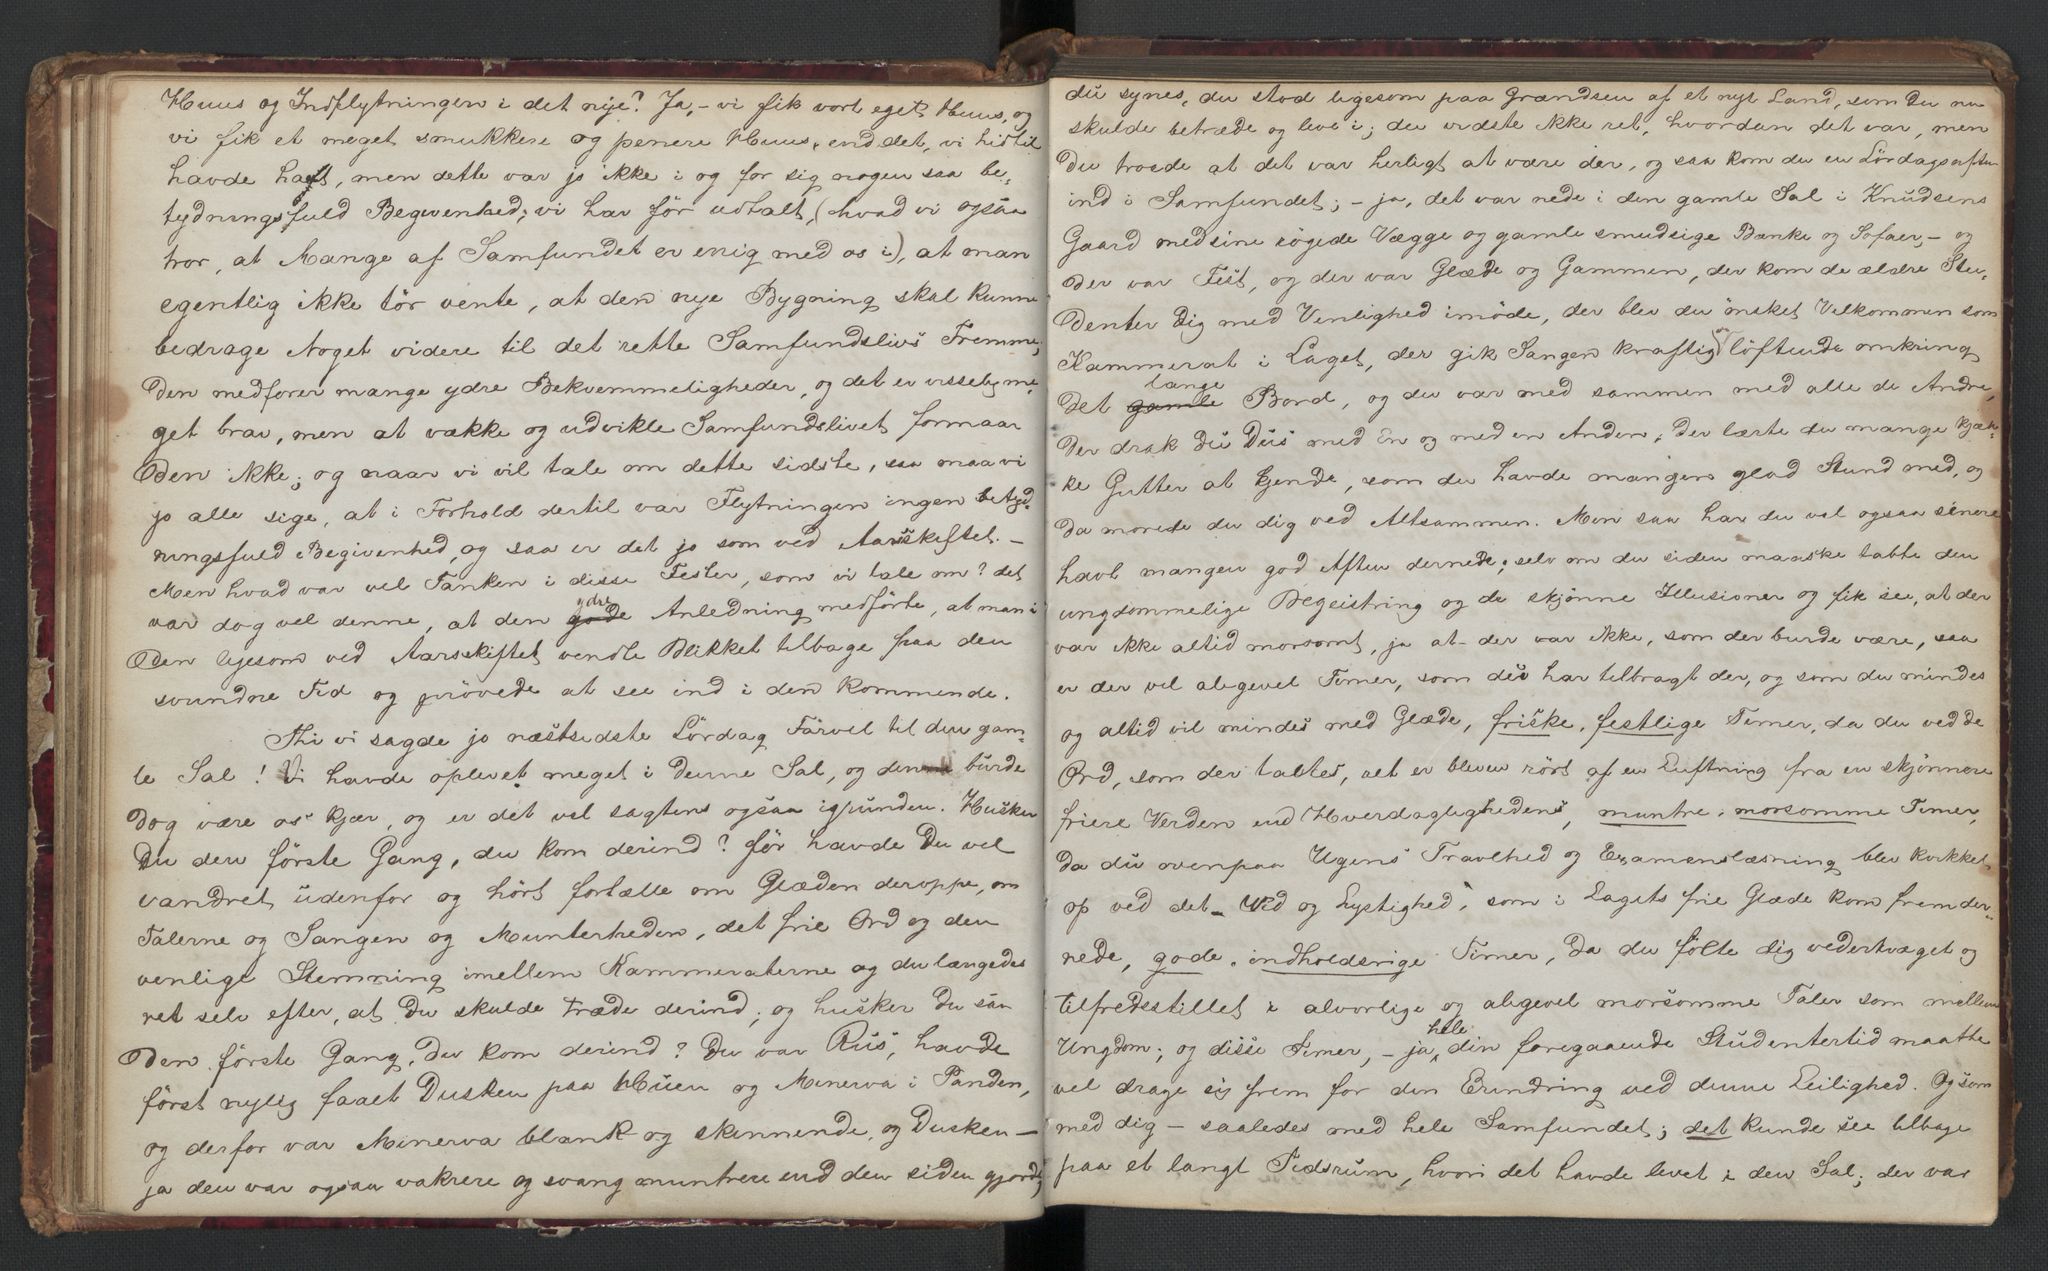 Huus og Indflytningen i det nye? Ja, – vi fik vort eget Huus, og
vi fik et meget smukkere og penere Huus, end det, vi hidtil
havde haft, men dette var jo ikke i og for sig nogen saa be-
tydningsfuld Begivenhed; vi har før udtalt, (hvad vi ogsaa
tror, at Mange af Samfundet er enig med os i), at man
egentlig ikke tør vente, at den nye Bygning skal kunne
bedrage Noget videre til det rette Samfundslivs Fremme;
den medfører mange ydre Bekvemmeligheder, og det er visselig me-
get brav, men at vække og udvikle Samfundslivet formaar
den ikke; og naar vi vil tale om dette sidste, saa maa vi
jo alle sige, at i Forhold dertil var Flytningen ingen betyd-
ningsfuld Begivenhed, og saa er det jo som ved Aarsskiftet. –
Men hvad var vel Tanken i disse Fester, som vi tale om? det
var dog vel denne, at den gode ydre Anledning medførte, at man i
den ligesom ved Aarsskiftet vendte Blikket tilbage paa den
svundne Tid og prøvede at see ind i den kommende.
Thi vi sagde jo næstsidste Lørdag Farvel til den gam-
le Sal! Vi havde oplevet meget i denne Sal, og den burde
dog være os kjær, og er det vel sagtens ogsaa igrunden. Husker
Du den første Gang, du kom derind? før havde Du vel
vandret udenfor og hørt fortælle om Glæden deroppe, om
Talerne og Sangen og Munterheden, det frie Ord og den
venlige Stemning imellem Kammeraterne og du længedes
ret selv efter, at Du skulde træde derind; og husker Du saa
den første Gang, du kom derind? Du var Rus, havde
først nylig faaet Dusken paa Huen og Minerva i Panden,
og derfor var Minerva blank og skinnende, og Dusken –
ja den var ogsaa vakrere og svang muntrere end den siden gjorde;
du synes, du stod ligesom paa Grændsen af et nyt Land, som Du nu
skulde betræde og leve i; du vidste ikke ret, hvordan det var, men
Du troede at det var herligt at være der, og saa kom du en Lørdagsaften
ind i Samfundet; – ja, det var nede i den gamle Sal i Knudsens
Gaard med sine røgede Vægge og gamle smudsige Bænke og Sofaer, – og
der var Fest, og der var Glæde og Gammen, der kom de ældre Stu-
denter Dig med Venlighed imøde, der blev du ønsket Velkommen som
Kammerat i Laget, der gik Sangen kraftig og løftende omkring
det gamle lange Bord, og du var med sammen med alle de Andre,
der drak du Dus med En og med en Anden, der lærte du mange kjæk-
ke Gutter at kjende, som du havde mangen glad Stund med, og
da morede du dig ved Altsammen. Men saa har du vel ogsaa senere
havt mangen god Aften dernede; selv om du siden maaske tabte den
ungdommelige Begeistring og de skjønne Illusioner og fik see, at der
var ikke altid morsomt, ja at der var ikke, som der burde være, saa
er der vel alligevel Timer, som du har tilbragt der, og som du mindes
og altid vil mindes med Glæde, friske, festlige Timer, da du ved de
Ord, som der taltes, \[...] er bleven rørt af en Luftning fra en skjønnere
friere Verden end Hverdagslighedens, muntre, morsomme Timer,
da du ovenpaa Ugens Travlhed og Examenslæsning blev kvikket
op ved det Vid og Lystighed, som i Lagets frie Glæde kom frem der-
nede, gode, indholdsrige Timer, da du følte dig vederkvæget og
tilfredsstillet i alvorlige og alligevel morsomme Taler som mellem
Ungdom; og disse Timer, – ja, hele din foregaaende Studentertid maatte
vel drage sig frem for din Erindring ved denne Leilighed. Og som
med dig – saaledes med hele Samfundet; det kunde see tilbage
paa et langt Tidsrum, hvori det havde levet i den Sal; der var